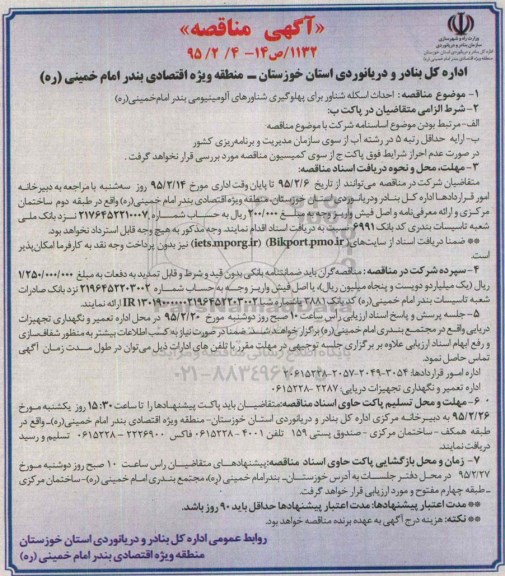 «آگهی مناقصه»
۱۱۳۲/ص۱۴- ۴/ ۲/ ۹۵
وزارت راه و شهرسازی
سازمان بنادر و دریانوردی
اداره کل بنادر و دریانوردی استان خوزستان
منطقه ویژه اقتصادی بندر امام خمینی (ره)
اداره کل بنادر و دریانوردی استان خوزستان – منطقه ویژه اقتصادی بندر امام خمینی (ره)
۱- موضوع مناقصه: احداث اسکله شناور برای پهلوگیری شناورهای آلومینیومی بندر امام‌خمینی(ره)
۲- شرط الزامی متقاضیان در پاکت ب:
الف-مرتبط بودن موضوع اساسنامه شرکت با موضوع مناقصه
ب-ارایه حداقل رتبه ۵ در رشته آب از سوی سازمان مدیریت و برنامه‌ریزی کشور
در صورت عدم احراز شرایط فوق پاکت ج از سوی کمیسیون مناقصه مورد بررسی قرار نخواهد گرفت.
۳- مهلت، محل و نحوه دریافت اسناد مناقصه:
متقاضیان شرکت در مناقصه می‌توانند از تاریخ ۹۵/۲/۶ تا پایان وقت اداری مورخ ۹۵/۲/۱۴ روز سه‌شنبه با مراجعه به دبیرخانه
امور قراردادها اداره کل بنادر ودریانوردی استان خوزستان، منطقه ویژه اقتصادی بندر امام خمینی (ره) واقع در طبقه دوم ساختمان
مرکزی و ارائه معرفی‌نامه و اصل فیش واریزی به مبلغ ۳۰۰/۰۰۰ ریال به حساب شماره ۲۱۷۶۴۵۲۲۱۰۰۰۷ نزد بانک ملی
شعبه تاسیسات بندری کد بانک ۶۹۹۱ نسبت به دریافت اسناد اقدام نمایند. وجه مذکور به هیچ وجه قابل استرداد نخواهد بود.
** ضمنا دریافت اسناد از سایت‌های (Bikport.pmo.ir) (iets.mporg.ir) نیز بدون پرداخت وجه نقد به کارفرما امکان‌پذیر
است.
۴- سپرده شرکت در مناقصه: مناقصه‌گران باید ضمانتنامه بانکی بدون قید و شرط و قابل تمدید به دفعات به مبلغ ۱/۲۵۰/۰۰۰/۰۰۰
ریال (یک میلیارد و دویست و پنجاه میلیون ریال)، یا اصل فیش واریز وجه به حساب شماره ۲۱۹۶۴۵۲۲۰۳۰۰۲ نزد بانک صادرات
شعبه تاسیسات بندر امام خمینی (ره) کد بانک ۳۸۸۱ با شماره شبا IR ۱۳۰۱۹۰۰۰۰۰۰۲۱۹۶۴۵۲۲۰۳۰۰۲ ارائه نمایند.
۵- جلسه پرسش و پاسخ اسناد ارزیابی راس ساعت ۱۰ صبح روز دوشنبه مورخ ۹۵/۲/۲۰ در محل اداره تعمیر و نگهداری تجهیزات
دریایی واقع در مجتمع بندری امام خمینی(ره) برگزار خواهد شد. ضمنا در صورت نیاز به کسب اطلاعات بیشتر به منظور شفاف‌سازی
و رفع ابهام اسناد ارزیابی علاوه بر برگزاری جلسه توجیهی در مهلت مقرر با تلفن های ادارات ذیل می‌توان در طول مدت زمان آگهی
تماس حاصل نمود.
اداره امور قراردادها: ۳۰۵۴-۲۰۴۹-۲۰۵۷-۰۶۱۵۲۲۸
اداره تعمیر و نگهداری تجهیزات دریایی: ۲۲۸۷-۰۶۱۵۲۲۸
۶- مهلت و محل تسلیم پاکت حاوی اسناد مناقصه: متقاضیان باید پاکت پیشنهادها را تا ساعت ۱۵:۳۰ روز یکشنبه مورخ
۹۵/۲/۲۶ به دبیرخانه مرکزی اداره کل بنادر و دریانوردی استان خوزستان- منطقه ویژه اقتصادی بندر امام خمینی (ره)-واقع در
طبقه همکف - ساختمان مرکزی - صندوق پستی ۱۵۹ تلفن ۴۰۰۱-۰۶۱۵۲۲۸ فاکس ۲۲۲۶۹۰۰-۰۶۱۵۲۲۸ تسلیم و رسید
دریافت نمایند.
۷- زمان و محل بازگشایی پاکت حاوی اسناد مناقصه: پیشنهادهای متقاضیان راس ساعت ۱۰ صبح روز دوشنبه مورخ
۹۵/۲/۲۷ در محل دفتر جلسات به آدرس خوزستان- بندر امام خمینی (ره)، مجتمع بندری امام خمینی (ره)- ساختمان مرکزی
-طبقه چهارم مفتوح و مورد ارزیابی قرار خواهد گرفت.
** مدت اعتبار پیشنهادها: مدت اعتبار پیشنهادها حداقل باید ۹۰ روز باشد.
** نکته: هزینه درج آگهی به عهده برنده مناقصه خواهد بود.
روابط عمومی اداره کل بنادر و دریانوردی استان خوزستان
منطقه ویژه اقتصادی بندر امام خمینی (ره)